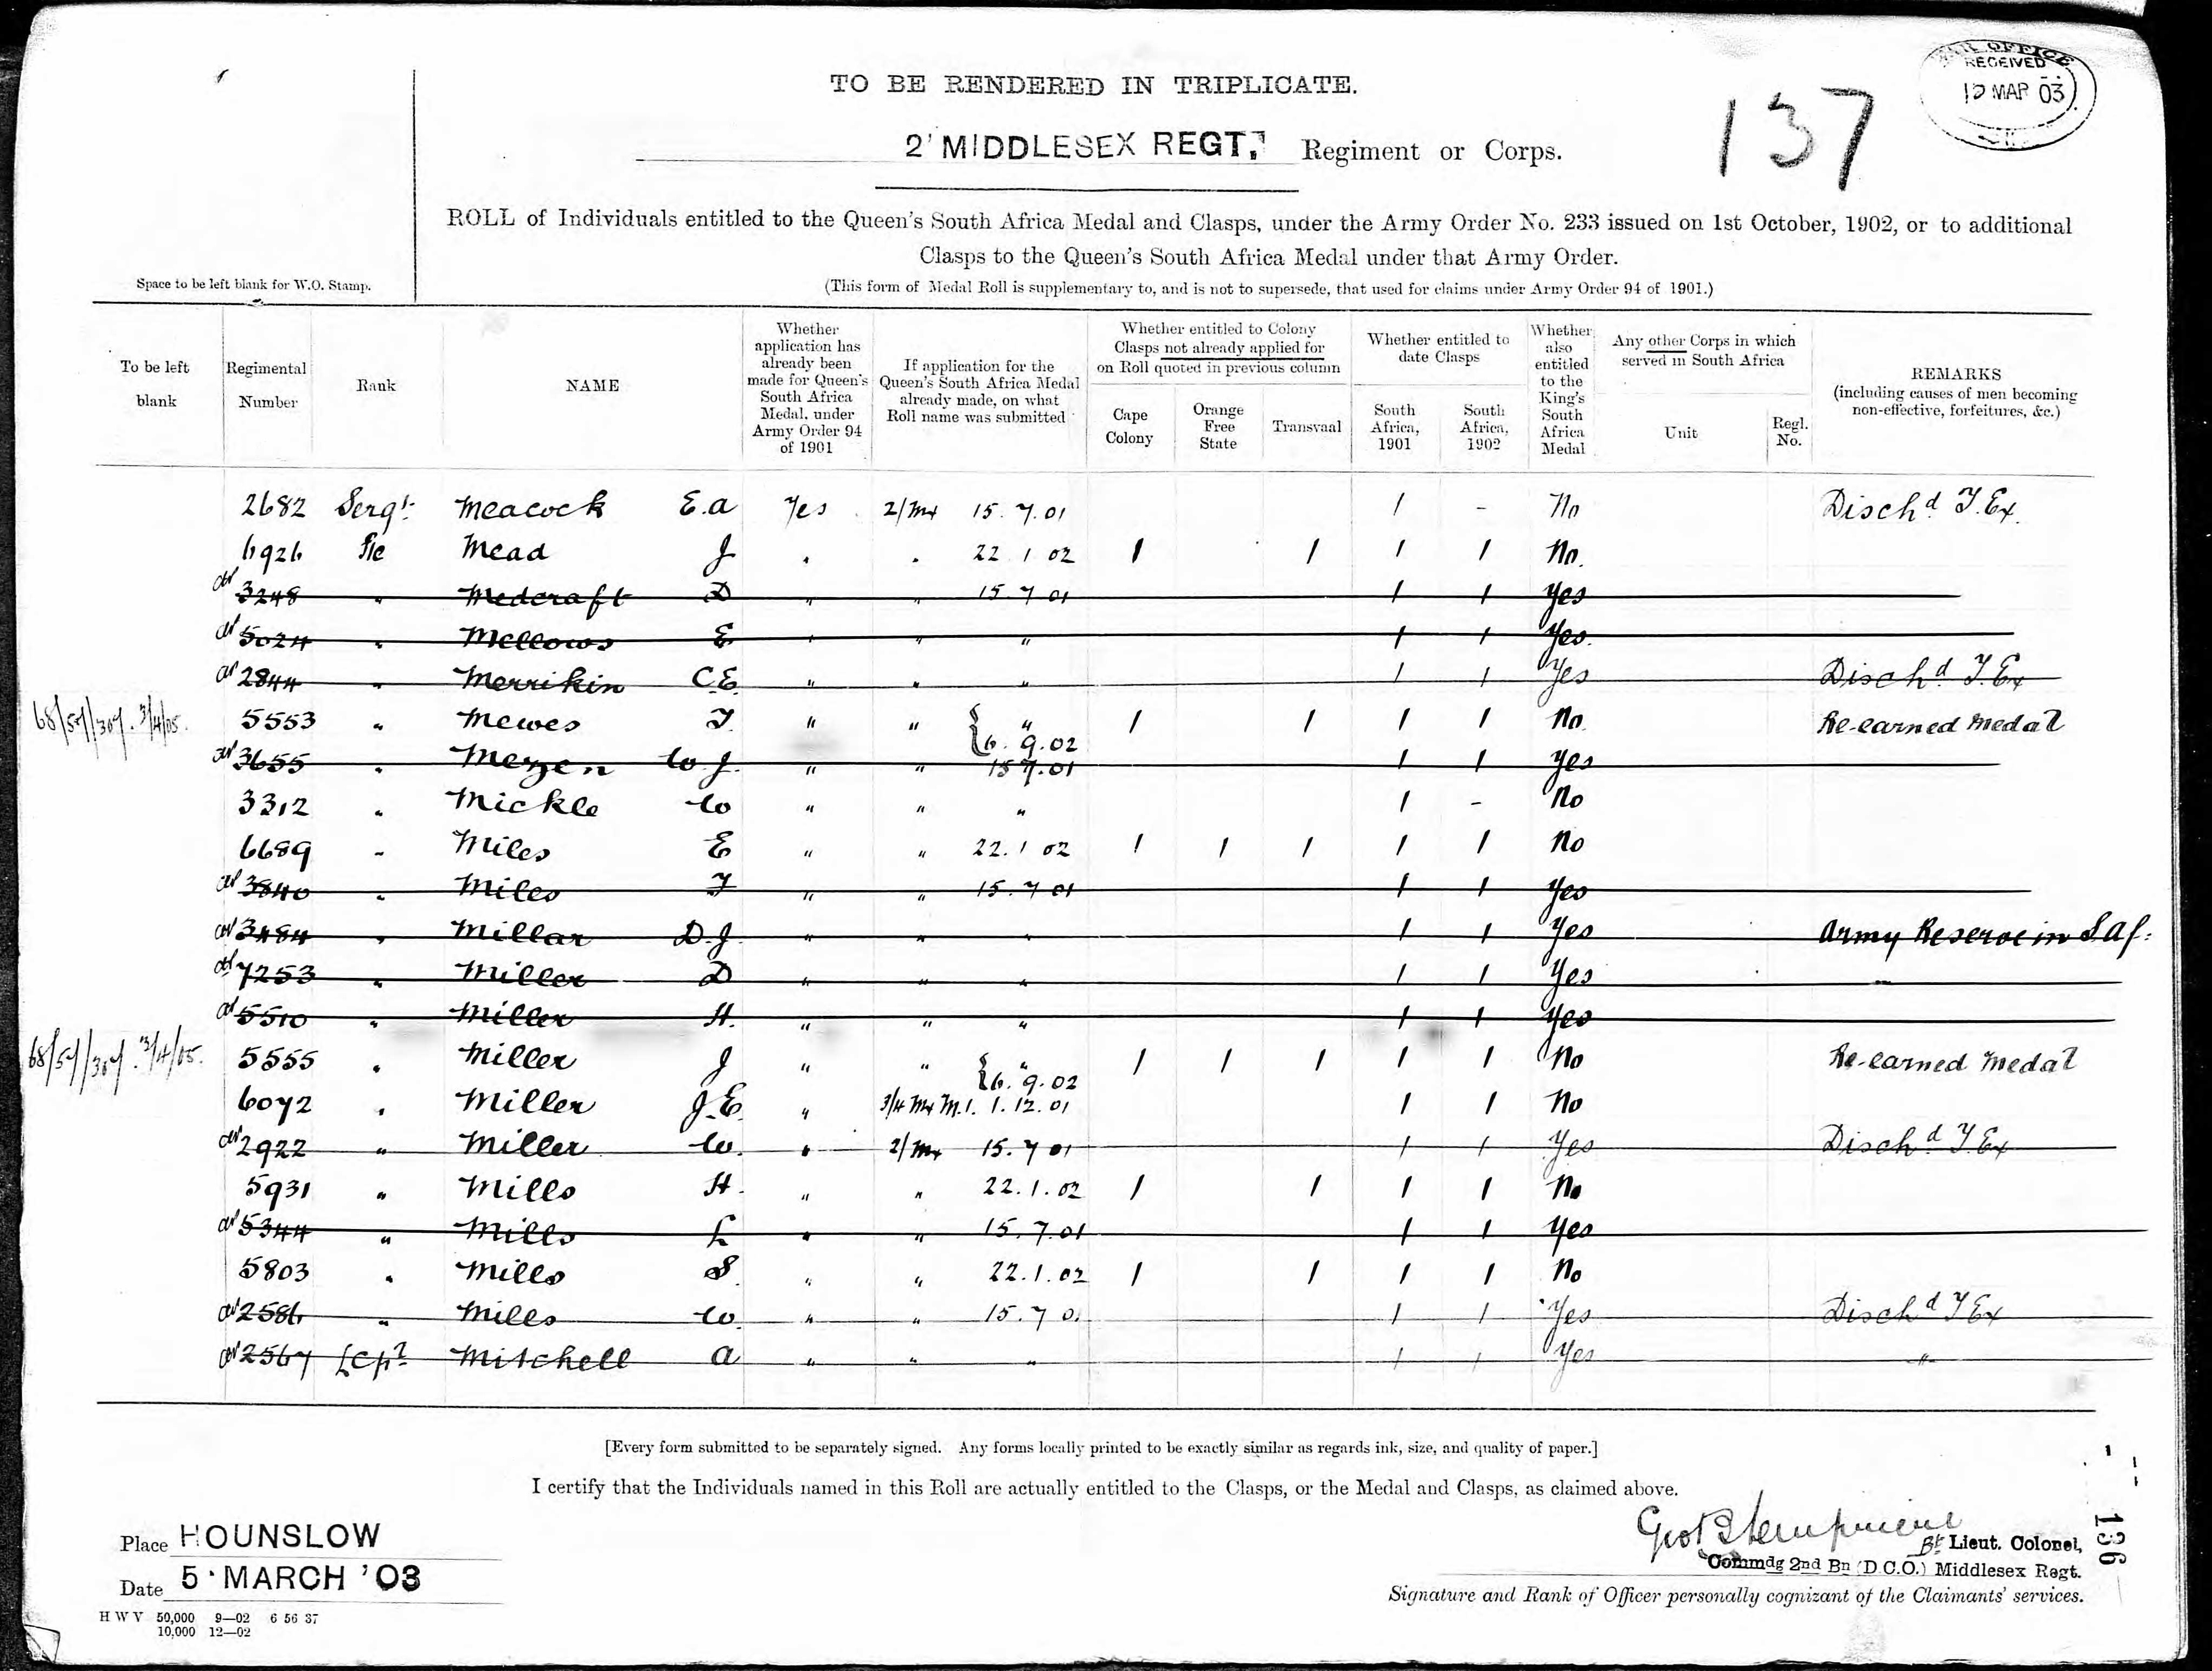 TO BE RENDERED IN TRIPLICATE.
WAR OFFICE
RECEIVED
MAR 03
137
2' MIDDLESEX REGT. Regiment or Corps.
ROLL of Individuals entitled to the Queen's South Africa Medal and Clasps, under the Army Order No. 233 issued on 1st October, 1902, or to additional
Clasps to the Queen's South Africa Medal under that Army Order.
Space to be left blank for W.O. Stamp.
(This form of Medal Roll is supplementary to, and is not to supersede, that used for claims under Army Order 94 of 1901.)
To be left blank
Regimental Number
Rank
NAME
Whether application has already been made for Queen's South Africa Medal, under Army Order 94 of 1901
If application for the Queen's South Africa Medal already made, on what Roll name was submitted
Whether entitled to Colony Clasps not already applied for on Roll quoted in previous column
Cape Colony
Orange Free State
Transvaal
Whether entitled to date Clasps
South Africa, 1901
South Africa, 1902
Whether also entitled to the King's South Africa Medal
Any other Corps in which served in South Africa
Unit
Regl. No.
REMARKS
(including causes of men becoming non-effective, forfeitures, &c.)
2682 Sergt. Meacock E.A Yes 2/Mx 15.7.01 1 - No Dischd T.Ex.
6926 Pte Mead J " " 22 1 02 1 1 1 1 No.
3248 " Medcraft D " " 15.7 01 1 1 Yes
5024 " Mellows E " " " 1 1 Yes.
2844 " Merrikin C.E. " " " 1 1 Yes Dischd T.Ex
68/57/307. 3/4/05. 5553 " Mewes T. " " { " 6.9.02 1 1 1 1 No. Re-earned Medal
3655 " Meyzen W.J. " " 15 7.01 1 1 Yes
3312 " Mickle W " " " 1 - No
6689 " Miles E " " 22.1 02 1 1 1 1 1 No
3840 " Miles T " " 15.7 01 1 1 Yes
3484 " Millar D.J. " " " 1 1 Yes Army Reserve in S Af:
7253 " Miller D " " " 1 1 Yes
5510 " Miller H. " " " 1 1 Yes
68/57/307. 3/4/05. 5555 " Miller J " " { " 6.9.02 1 1 1 1 1 No Re-earned Medal
6072 " Miller J.E. " 3/4 Mx M.I. 1.12.01 1 1 No
2922 " Miller W. " 2/Mx 15.7 01 1 1 Yes Dischd T Ex
5931 " Mills H. " " 22.1.02 1 1 1 1 No
5344 " Mills L " " 15.7.01 1 1 Yes
5803 " Mills S. " " 22.1.02 1 1 1 1 No
2586 " Mills W. " " 15.7 01 1 1 Yes Dischd T Ex
2567 LCpl Mitchell A " " " 1 1 Yes "
[Every form submitted to be separately signed. Any forms locally printed to be exactly similar as regards ink, size, and quality of paper.]
I certify that the Individuals named in this Roll are actually entitled to the Clasps, or the Medal and Clasps, as claimed above.
Place HOUNSLOW
Bt Lieut. Colonel,
Commdg 2nd Bn (D.C.O.) Middlesex Regt.
Date 5 · MARCH '03
Signature and Rank of Officer personally cognizant of the Claimants' services.
H W V 50,000 9—02 6 56 37
10,000 12—02
136